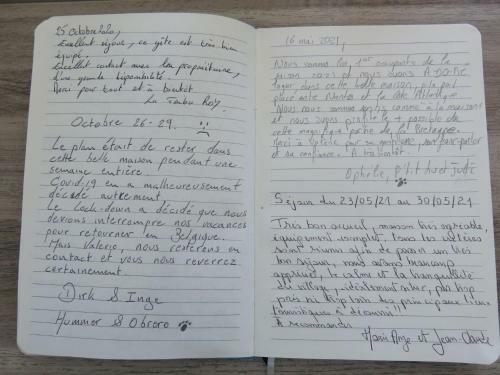 25 octobre 2020,
Excellent séjour, ce gîte est très bien
équipé.
Excellent contact avec les propriétaires,
d'une grande disponibilité.
Merci pour tout et à bientôt
La Tribu Roy.
Octobre 26-29.
Le plan était de rester dans
cette belle maison pendant une
semaine entière.
Covid-19 en a malheureusement
décidé autrement.
Le lock-down a décidé que nous
devions interrompre nos vacances
pour retourner en Belgique.
Mais Valerie, nous resterons en
contact et vous nous reverrez
certainement
Dirk & Inge
Hummer & Obrero
16 mai 2021,
Nous sommes les 1er occupants de la
saison 2021 et nous avons ADORE
loger dans cette belle maison,
place entre Nantes et la côte Atlantique
Nous nous sommes sentis comme à la maison
et nous avons profité + possible de
cette magnifique partie de la Bretagne.
Merci à Valérie pour sa
et sa confiance. A très bientôt.
Ophélie, P'tit
Séjour du 23/05/21 au 30/05/21
Très bon accueil, maison très agréable,
équipement complet, tous les critères
sont réunis de passer un très
bon séjour, nous avons beaucoup
apprécié le calme et la tranquillité
du village, idéalement situé, pas trop
près ni trop loin des principaux lieux
touristiques à découvrir!!
A recommander
Marie Ange et Jean-Claude